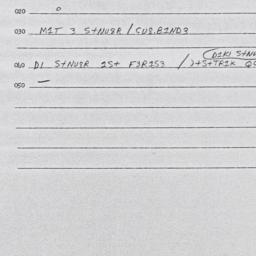 020 o
030 MIT 3 S+NUBR / CUS.BIND3
(DIKI S+N
040 DI S+NUBR IS+ F3RIS3 / )+S+TRIK
050 —